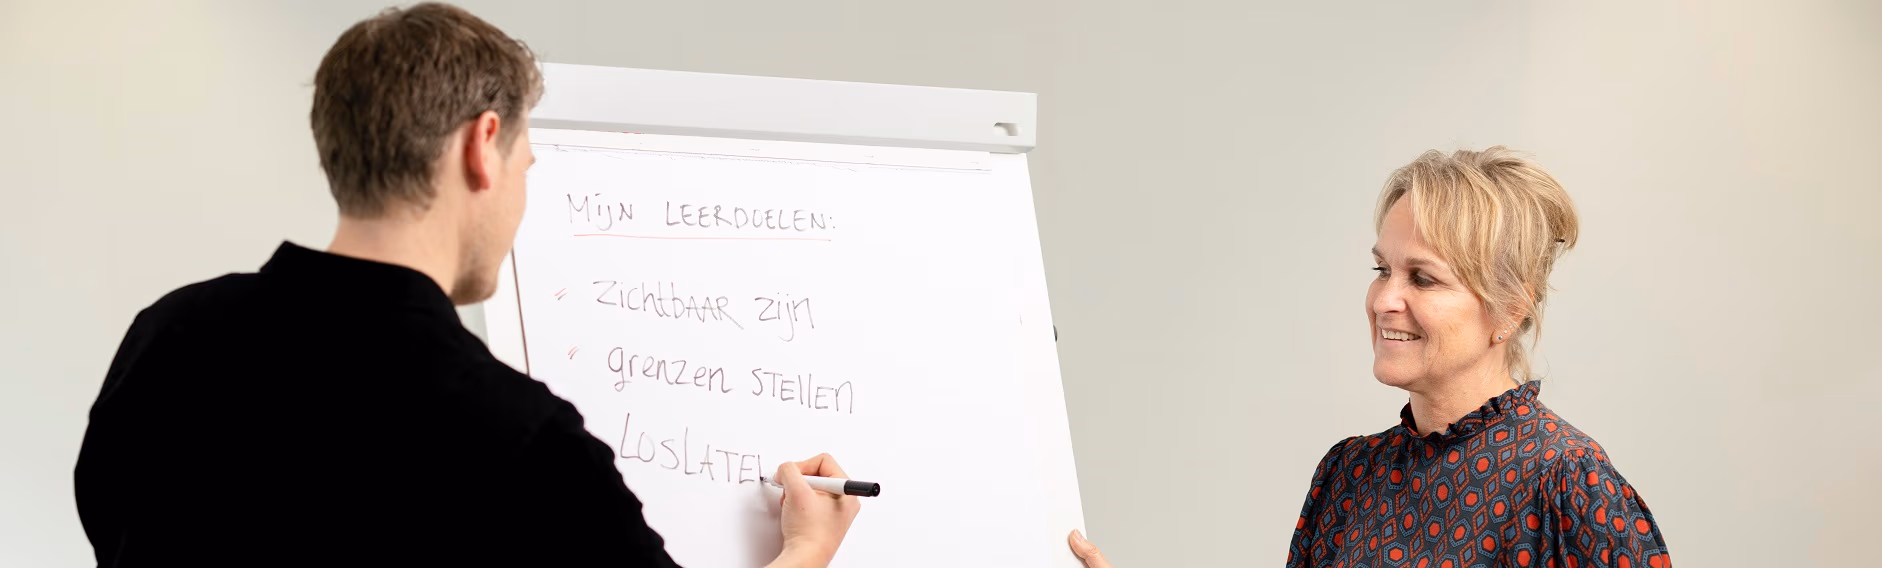 Mijn LEERDOELEN:
zichtbAAR zijn
grenzen STEllEN
LOSLATEN